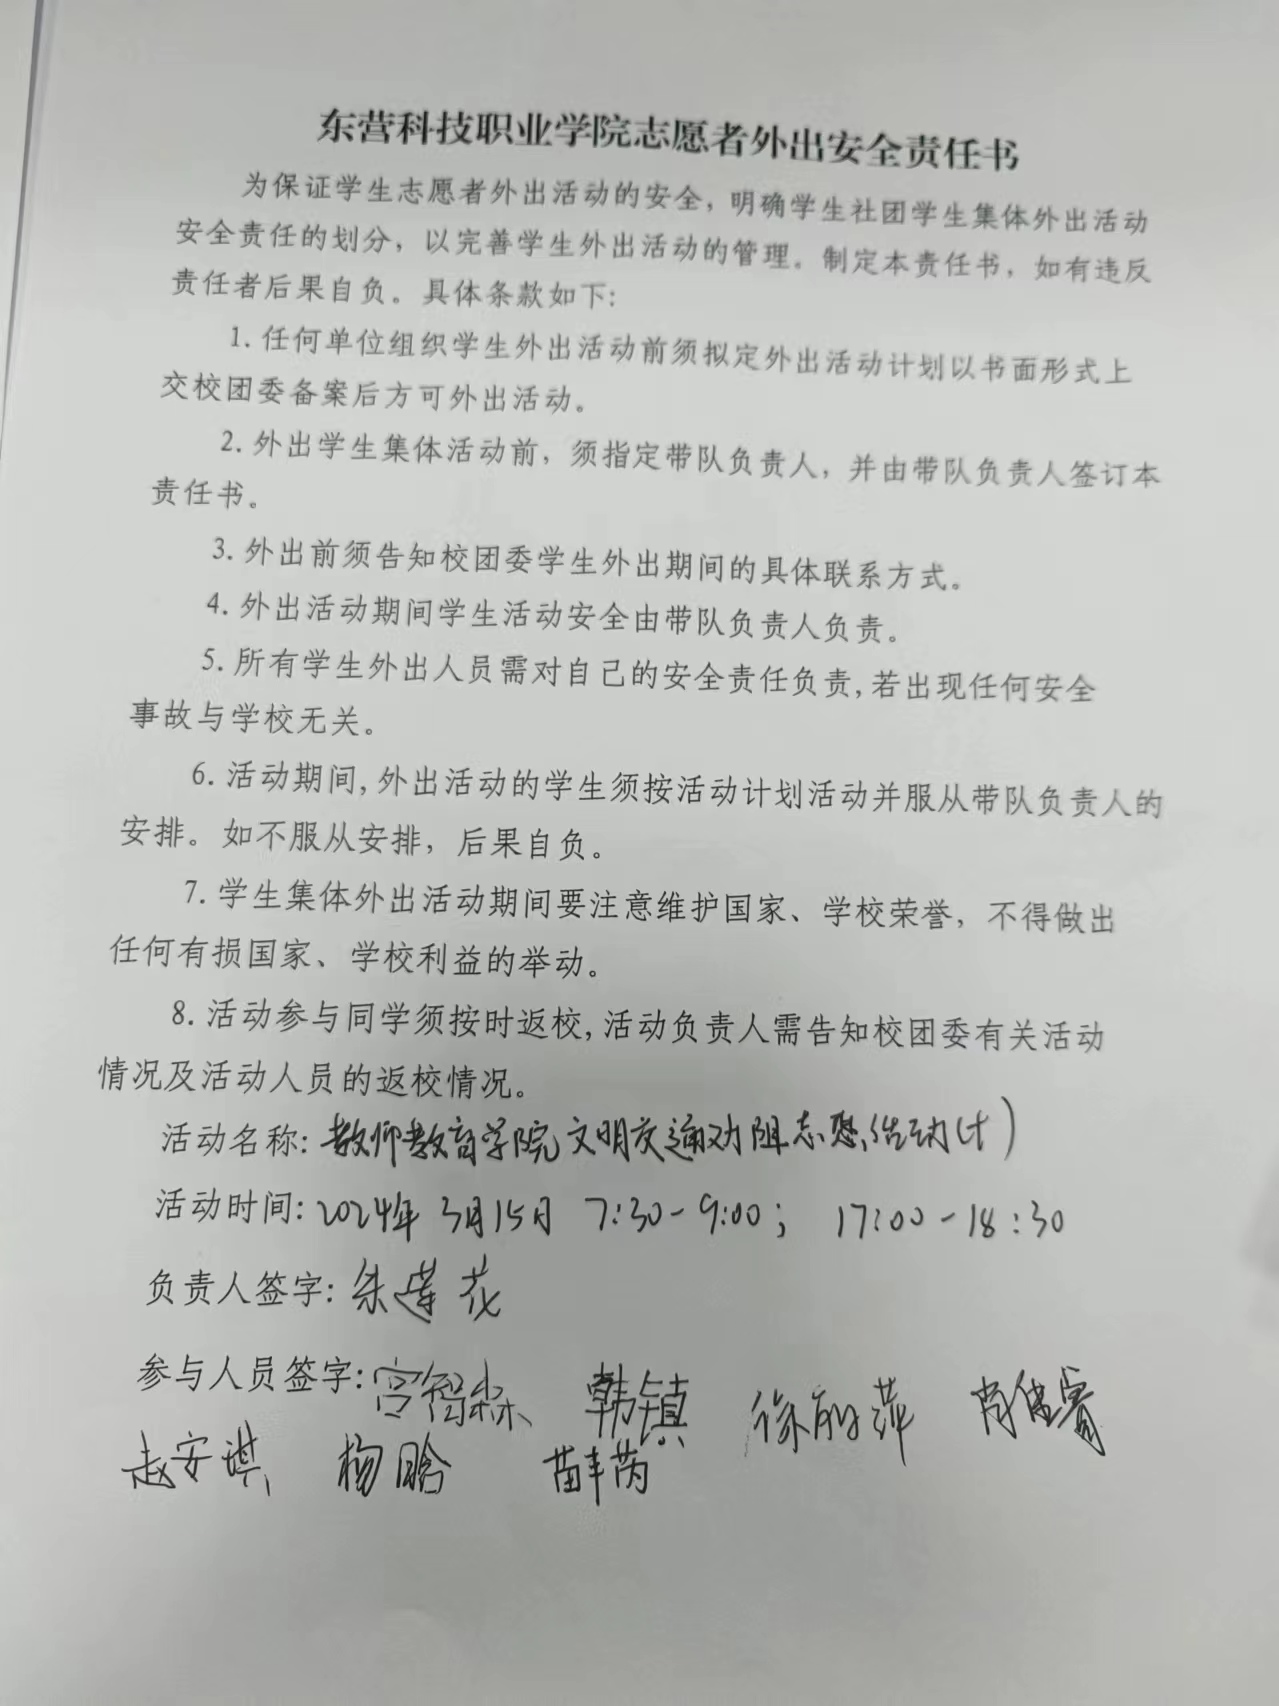 东营科技职业学院志愿者外出安全责任书
为保证学生志愿者外出活动的安全，明确学生社团学生集体外出活动
安全责任的划分，以完善学生外出活动的管理。制定本责任书，如有违反
责任者后果自负。具体条款如下：
1. 任何单位组织学生外出活动前须拟定外出活动计划以书面形式上
交校团委备案后方可外出活动。
2. 外出学生集体活动前，须指定带队负责人，并由带队负责人签订本
责任书。
3. 外出前须告知校团委学生外出期间的具体联系方式。
4. 外出活动期间学生活动安全由带队负责人负责。
5. 所有学生外出人员需对自己的安全责任负责,若出现任何安全
事故与学校无关。
6. 活动期间,外出活动的学生须按活动计划活动并服从带队负责人的
安排。如不服从安排，后果自负。
7. 学生集体外出活动期间要注意维护国家、学校荣誉，不得做出
任何有损国家、学校利益的举动。
8. 活动参与同学须按时返校,活动负责人需告知校团委有关活动
情况及活动人员的返校情况。
活动名称: 教师教育学院文明交通劝阻志愿活动(十)
活动时间: 2024年 3月15日 7:30-9:00; 17:00-18:30
负责人签字: 朱莲花
参与人员签字: 宫智森 韩镇 徐 萍 肖
赵安琪 杨晗 苗丰芮